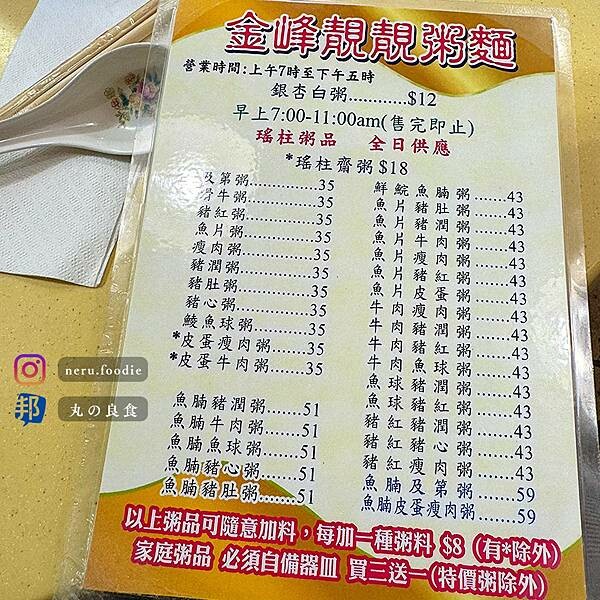 金峰靚靚粥麵
營業時間:上午7時至下午五時
銀杏白粥............$12
早上7:00-11:00am(售完即止)
瑤柱粥品 全日供應
*瑤柱齋粥 $18
及第粥............35
骨牛粥............35
豬紅粥............35
魚片粥............35
瘦肉粥............35
豬潤粥............35
豬肚粥............35
豬心粥............35
鯪魚球粥.........35
*皮蛋瘦肉粥......35
*皮蛋牛肉粥......35
魚腩豬潤粥......51
魚腩牛肉粥......51
魚腩魚球粥......51
魚腩豬心粥......51
魚腩豬肚粥.......51
鮮鯇魚腩粥......43
魚片豬肚粥......43
魚片豬潤粥......43
魚片牛肉粥......43
魚片瘦肉粥......43
魚片豬紅粥......43
魚片皮蛋粥......43
牛肉瘦肉粥......43
牛肉豬潤粥......43
牛肉豬紅粥......43
牛肉魚球粥......43
魚球豬潤粥......43
魚球豬紅粥......43
豬紅豬潤粥......43
豬紅豬心粥......43
豬紅瘦肉粥......43
魚腩及第粥......59
魚腩皮蛋瘦肉粥...59
以上粥品可隨意加料，每加一種粥料 $8 (有*除外)
家庭粥品 必須自備器皿 買三送一(特價粥除外)
neru.foodie
邦 丸の良食